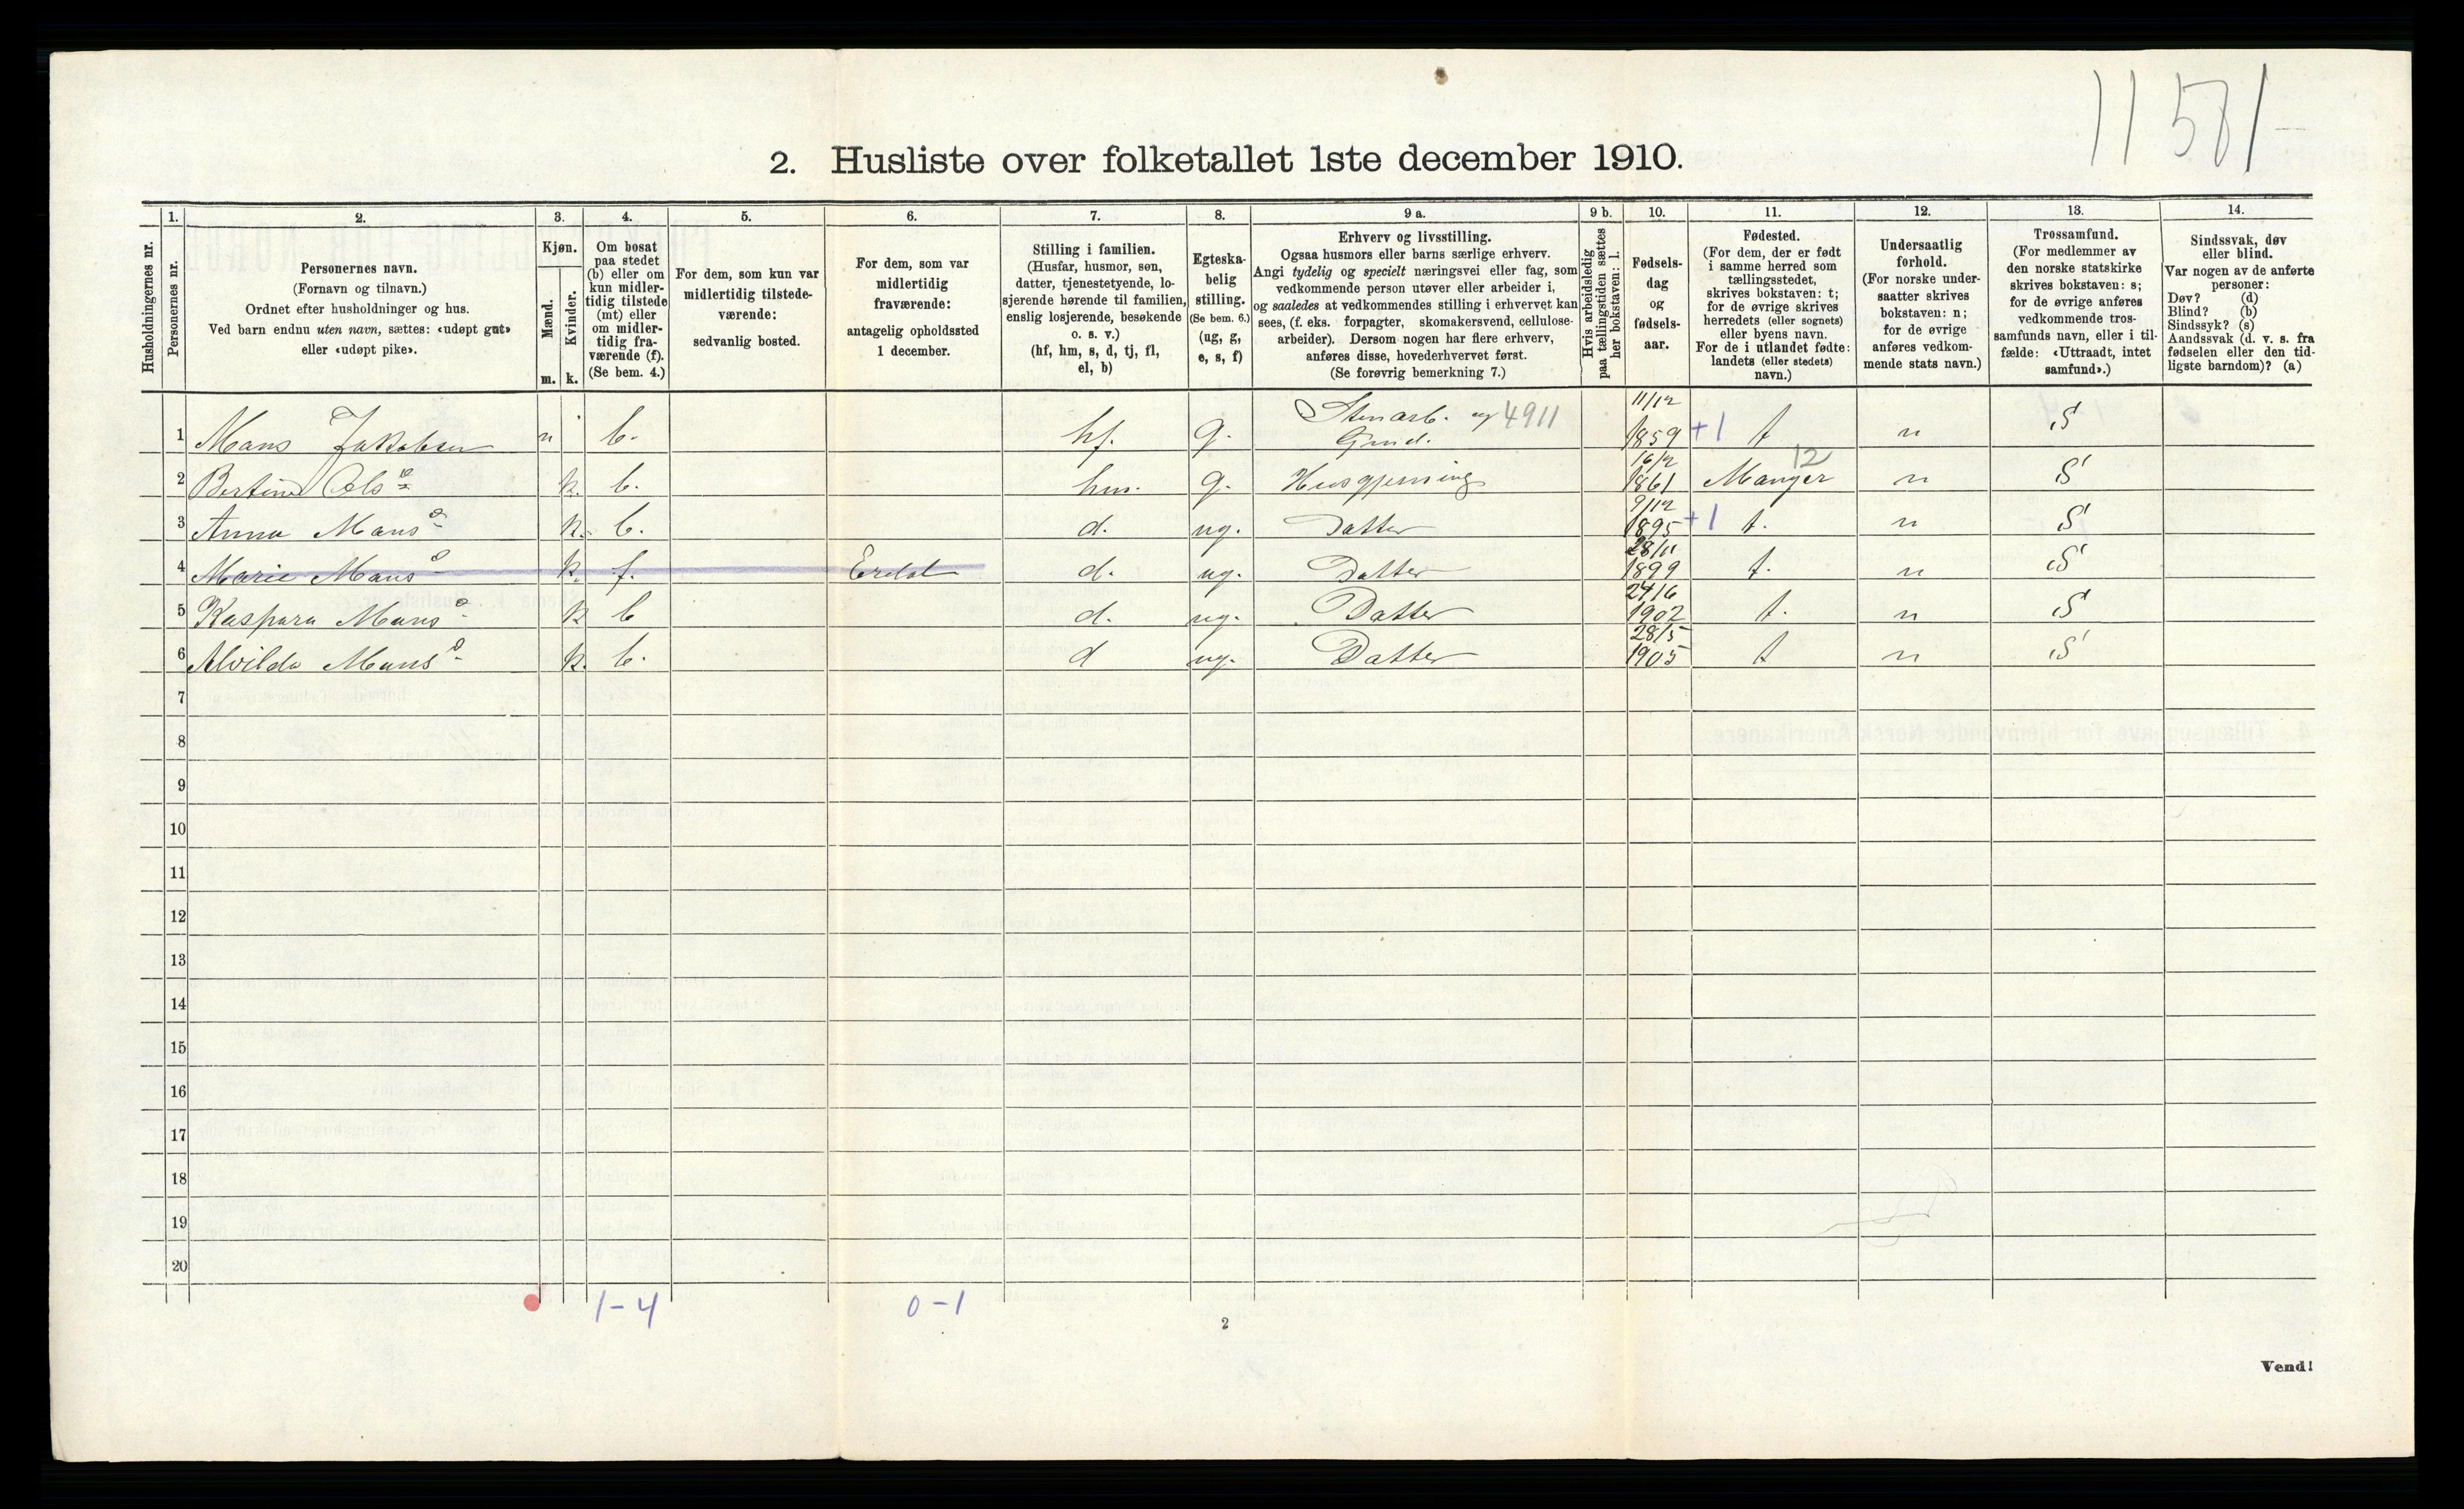 11 571
2. Husliste over folketallet 1ste december 1910.
Husholdningernes nr.
1.
Personernes nr.
2.
Personernes navn.
(Fornavn og tilnavn.)
Ordnet efter husholdninger og hus.
Ved barn endnu uten navn, sættes: «udøpt gut»
eller «udøpt pike».
3.
Kjøn.
Mænd.
Kvinder.
m. k.
4.
Om bosat
paa stedet
(b) eller om
kun midler-
tidig tilstede
(mt) eller
om midler-
tidig fra-
værende (f).
(Se bem. 4.)
5.
For dem, som kun var
midlertidig tilstede-
værende:
sedvanlig bosted.
6.
For dem, som var
midlertidig
fraværende:
antagelig opholdssted
1 december.
7.
Stilling i familien.
(Husfar, husmor, søn,
datter, tjenestetyende, lo-
sjerende hørende til familien,
enslig losjerende, besøkende
o. s. v.)
(hf, hm, s, d, tj, fl,
el, b)
8.
Egteska-
belig
stilling.
(Se bem. 6.)
(ug, g,
e, s, f)
9 a.
Erhverv og livsstilling.
Ogsaa husmors eller barns særlige erhverv.
Angi tydelig og specielt næringsvei eller fag, som
vedkommende person utøver eller arbeider i,
og saaledes at vedkommendes stilling i erhvervet kan
sees, (f. eks. forpagter, skomakersvend, cellulose-
arbeider). Dersom nogen har flere erhverv,
anføres disse, hovederhvervet først.
(Se forøvrig bemerkning 7.)
9 b.
Hvis arbeidsledig
paa tællingstiden sættes
her bokstaven: l.
10.
Fødsels-
dag
og
fødsels-
aar.
11.
Fødested.
(For dem, der er født
i samme herred som
tællingsstedet,
skrives bokstaven: t;
for de øvrige skrives
herredets (eller sognets)
eller byens navn.
For de i utlandet fødte:
landets (eller stedets)
navn.)
12.
Undersaatlig
forhold.
(For norske under-
saatter skrives
bokstaven: n;
for de øvrige
anføres vedkom-
mende stats navn.)
13.
Trossamfund.
(For medlemmer av
den norske statskirke
skrives bokstaven: s;
for de øvrige anføres
vedkommende tros-
samfunds navn, eller i til-
fælde: «Uttraadt, intet
samfund».)
14.
Sindssvak, døv
eller blind.
Var nogen av de anførte
personer:
Døv? (d)
Blind? (b)
Sindssyk? (s)
Aandssvak (d. v. s. fra
fødselen eller den tid-
ligste barndom)? (a)
1 Mans Jakobsen m b. hf. g. Stenarb. og 4911 11/12 1859 +1 t n S
Grud.
2 Bertine Ols k. b. hm. g. Husgjerning 16/2 1861 Manger 12 n S
3 Anna Mans k. b. d. ug. Datter 9/12 1895 +1 t. n S
4 Marie Mans k. f. d. ug. Datter 28/11 1899 t. n S
5 Kaspara Mans k b d. ug. Datter 24/6 1902 t. n S
6 Alvilda Mans k. b. d ug. Datter 28/5 1905 t n S
7
8
9
10
11
12
13
14
15
16
17
18
19
20
1-4 0-1
2
Vend!